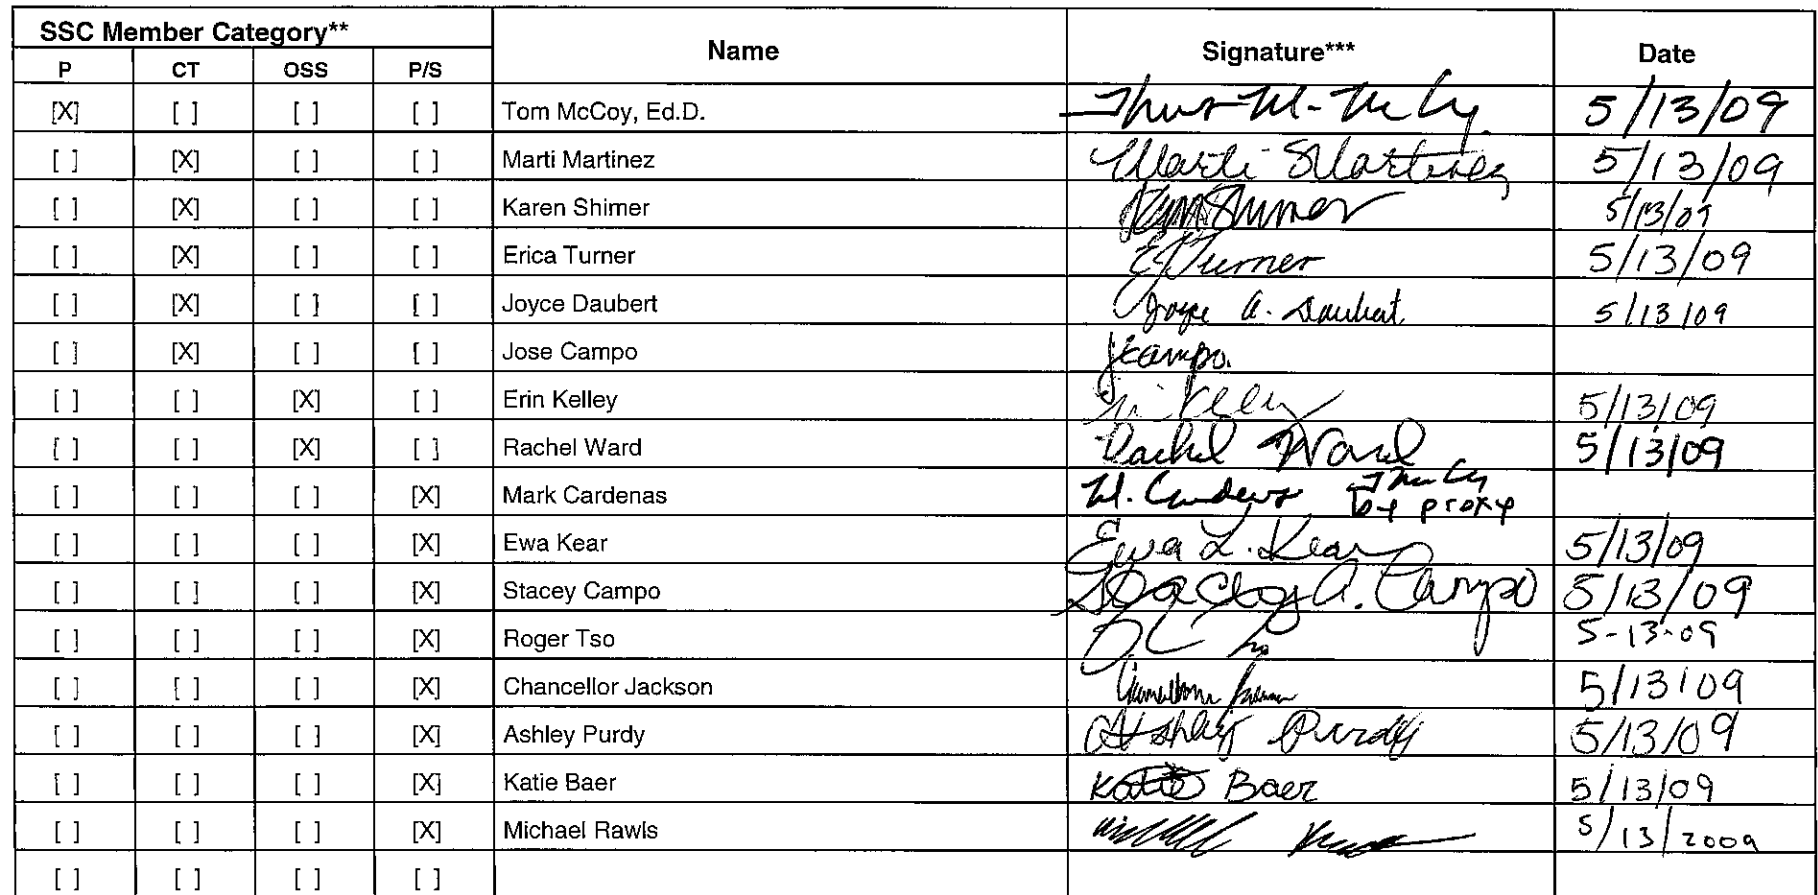 SSC Member Category** Name Signature*** Date
P CT OSS P/S
[X] [ ] [ ] [ ] Tom McCoy, Ed.D. 5/13/09
[ ] [X] [ ] [ ] Marti Martinez Marti Martinez 5/13/09
[ ] [X] [ ] [ ] Karen Shimer Shimer 5/13/09
[ ] [X] [ ] [ ] Erica Turner E Turner 5/13/09
[ ] [X] [ ] [ ] Joyce Daubert Joyce A. Daubert 5/13/09
[ ] [X] [ ] [ ] Jose Campo JCampo.
[ ] [ ] [X] [ ] Erin Kelley Kelley 5/13/09
[ ] [ ] [X] [ ] Rachel Ward Rachel Ward 5/13/09
[ ] [ ] [ ] [X] Mark Cardenas M. Cardenas by proxy
[ ] [ ] [ ] [X] Ewa Kear Ewa L. Kear 5/13/09
[ ] [ ] [ ] [X] Stacey Campo Stacey A. Campo 5/13/09
[ ] [ ] [ ] [X] Roger Tso 5-13-09
[ ] [ ] [ ] [X] Chancellor Jackson 5/13/09
[ ] [ ] [ ] [X] Ashley Purdy Ashley Purdy 5/13/09
[ ] [ ] [ ] [X] Katie Baer Katie Baer 5/13/09
[ ] [ ] [ ] [X] Michael Rawls 5/13/2009
[ ] [ ] [ ] [ ]